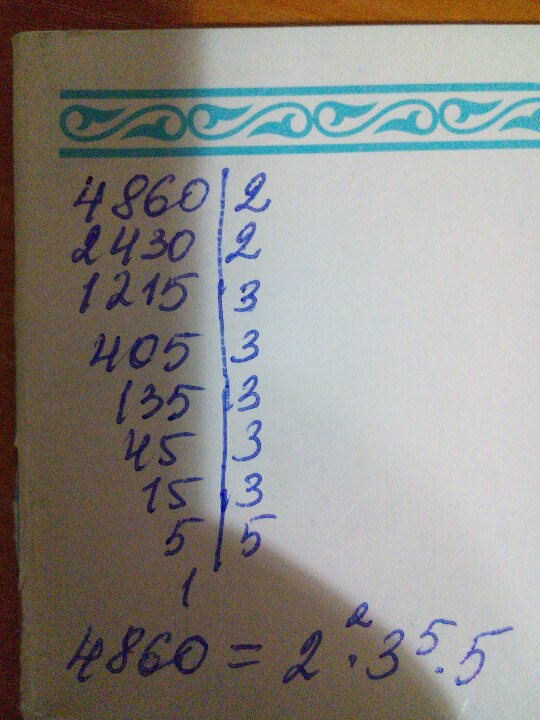 4860 | 2
2430 | 2
1215 | 3
405 | 3
135 | 3
45 | 3
15 | 3
5 | 5
1
4860 = 2² · 3⁵ · 5